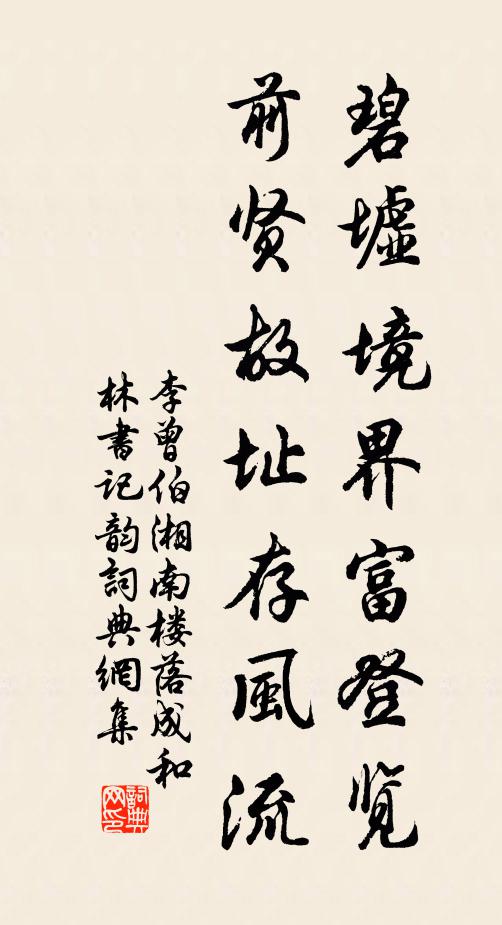 碧墟境界富登览
前贤故址存風流
李曾伯湘南楼落成和
林書记韵詞典網集
詞典网印